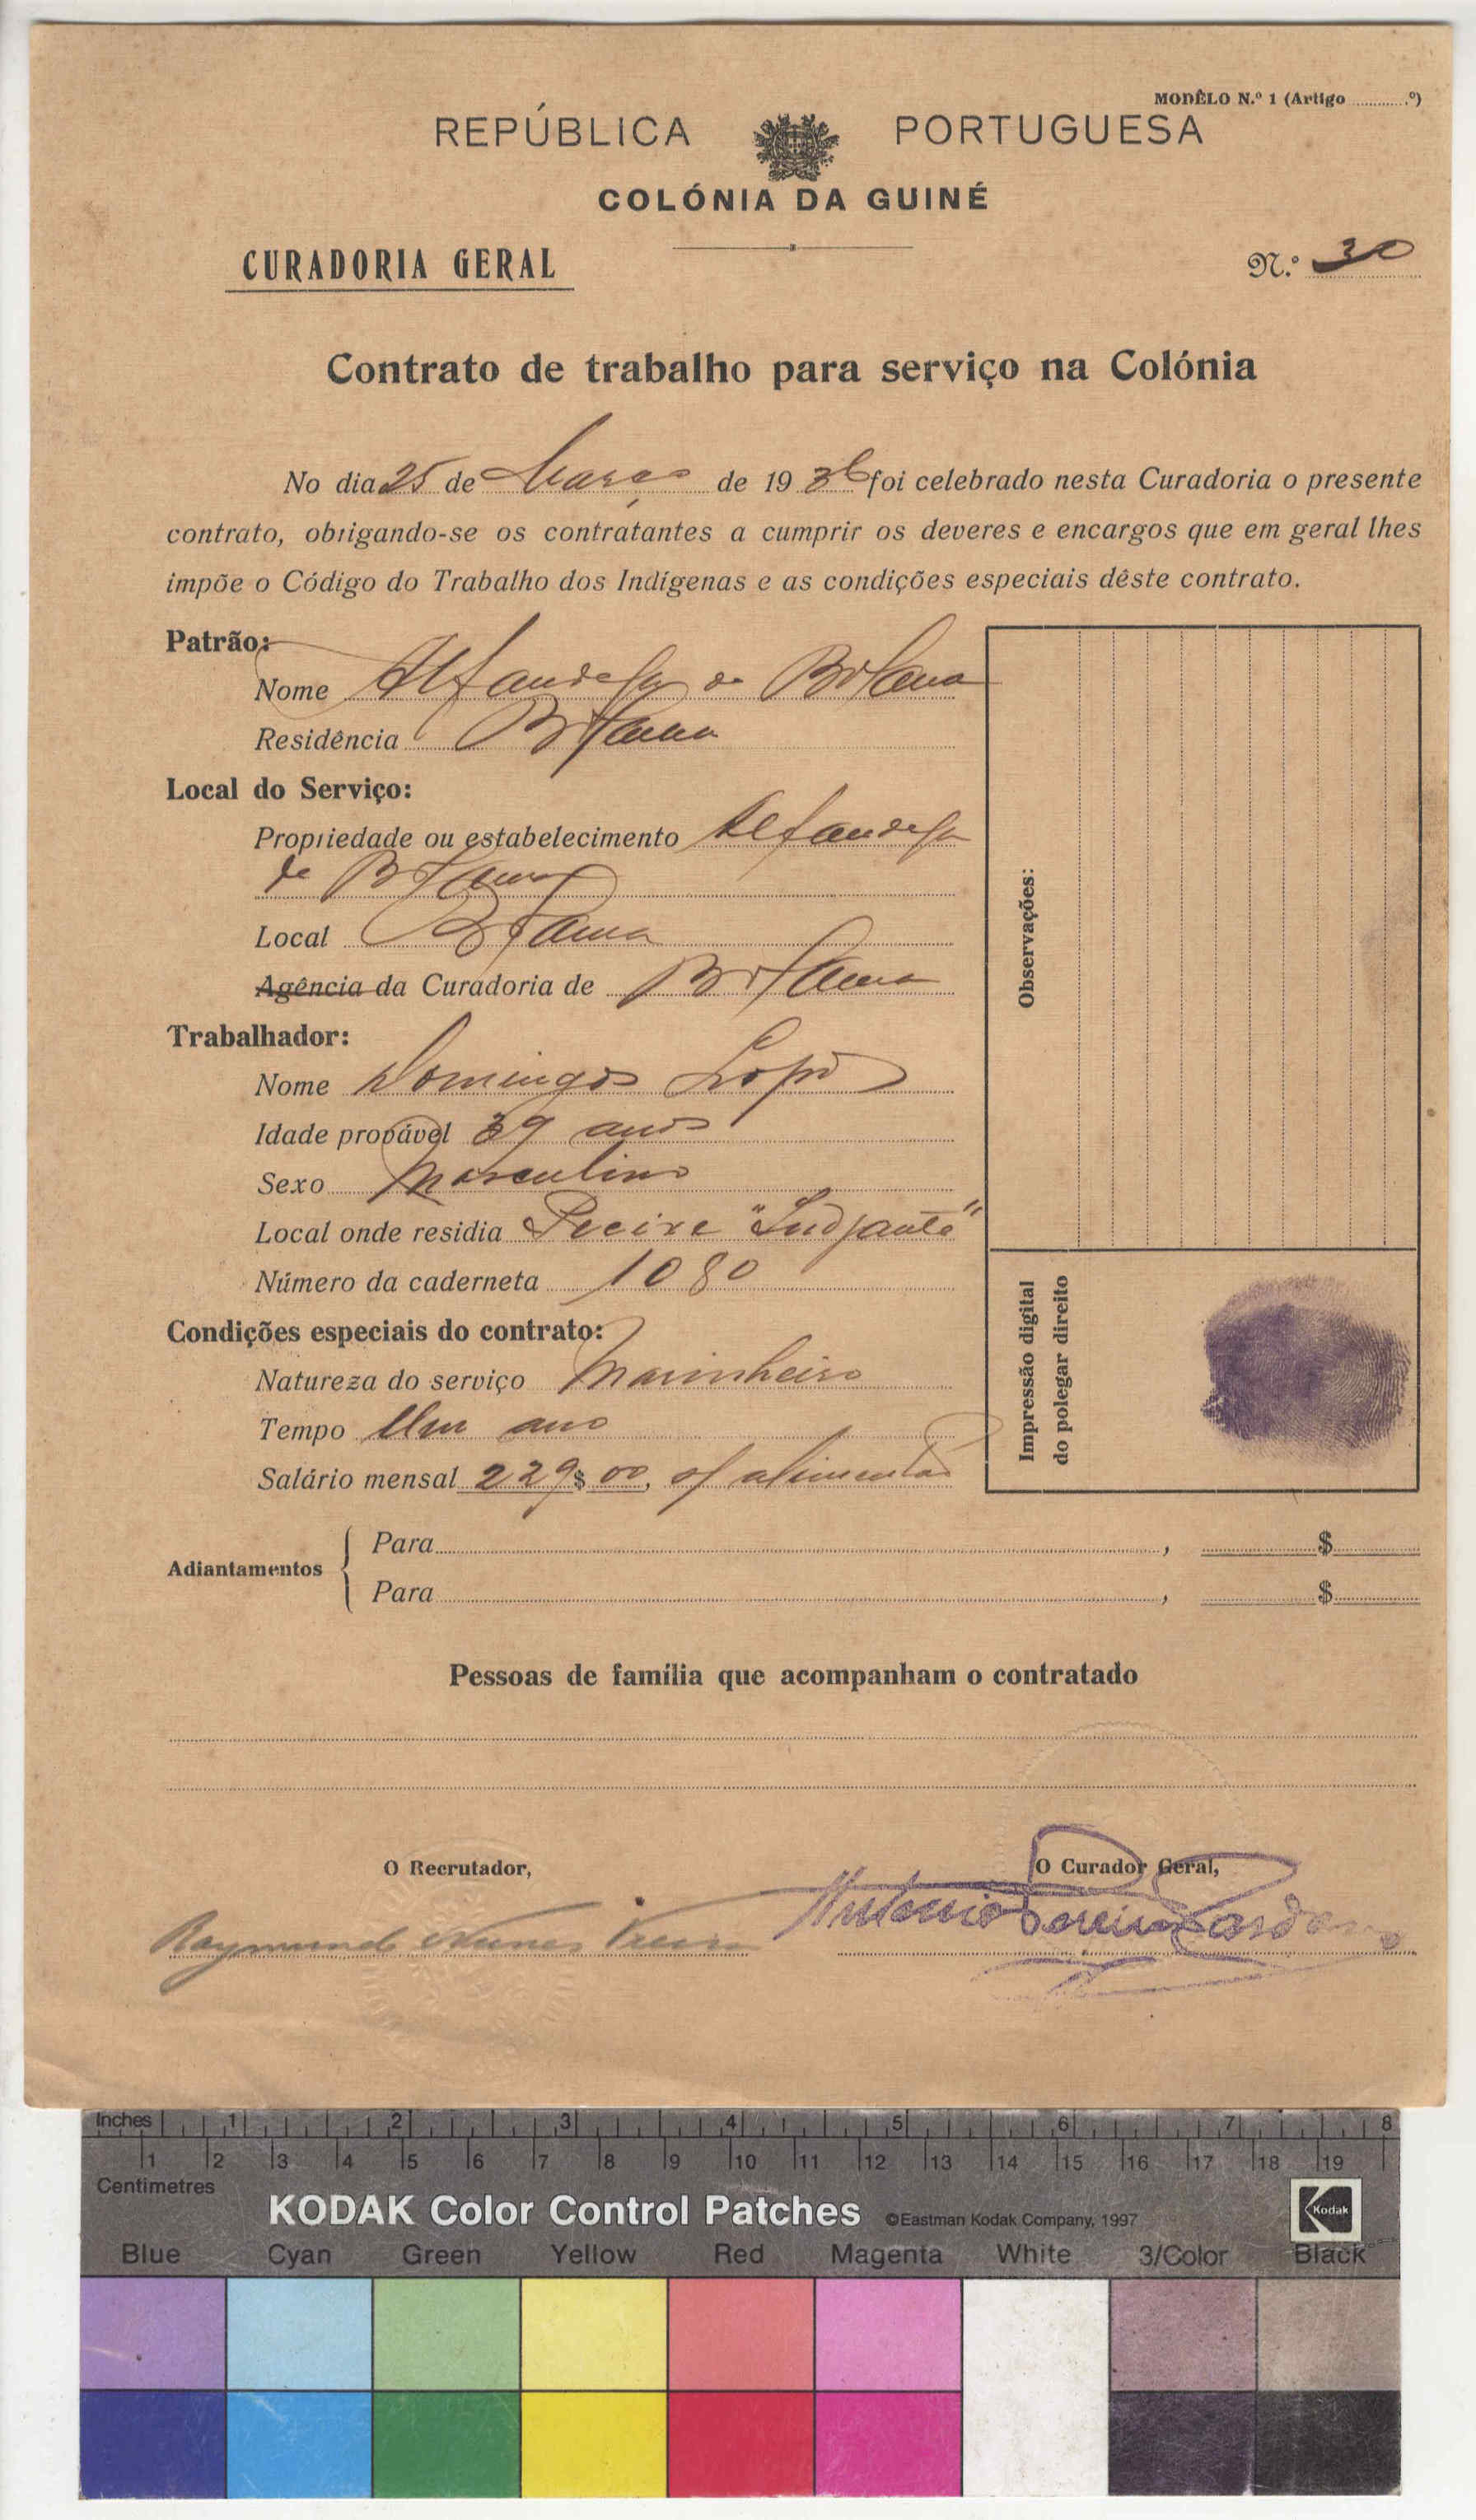 MODÊLO N.º 1 (Artigo ............º)
REPÚBLICA PORTUGUESA
COLÓNIA DA GUINÉ
CURADORIA GERAL
N.º 30
Contrato de trabalho para serviço na Colónia
No dia 25 de Março de 1936 foi celebrado nesta Curadoria o presente
contrato, obrigando-se os contratantes a cumprir os deveres e encargos que em geral lhes
impõe o Código do Trabalho dos Indígenas e as condições especiais dêste contrato.
Patrão:
Nome Alfandega de Bolama
Residência Bolama
Local do Serviço:
Propriedade ou estabelecimento Alfandega
de Bolama
Local Bolama
Agência da Curadoria de Bolama
Trabalhador:
Nome Domingos Lopes
Idade provável 39 anos
Sexo Masculino
Local onde residia
Número da caderneta 1080
Condições especiais do contrato:
Natureza do serviço Marinheiro
Tempo Um ano
Salário mensal 229$00, s/ alimentação
Observações:
Impressão digital
do polegar direito
Adiantamentos
Para , $
Para , $
Pessoas de família que acompanham o contratado
O Recrutador,
O Curador Geral,
Raymundo Nunes
Antonio Pereira Cardoso
Inches 1 2 3 4 5 6 7 8
1 2 3 4 5 6 7 8 9 10 11 12 13 14 15 16 17 18 19
Centimetres
KODAK Color Control Patches ©Eastman Kodak Company, 1997 Kodak
Blue Cyan Green Yellow Red Magenta White 3/Color Black